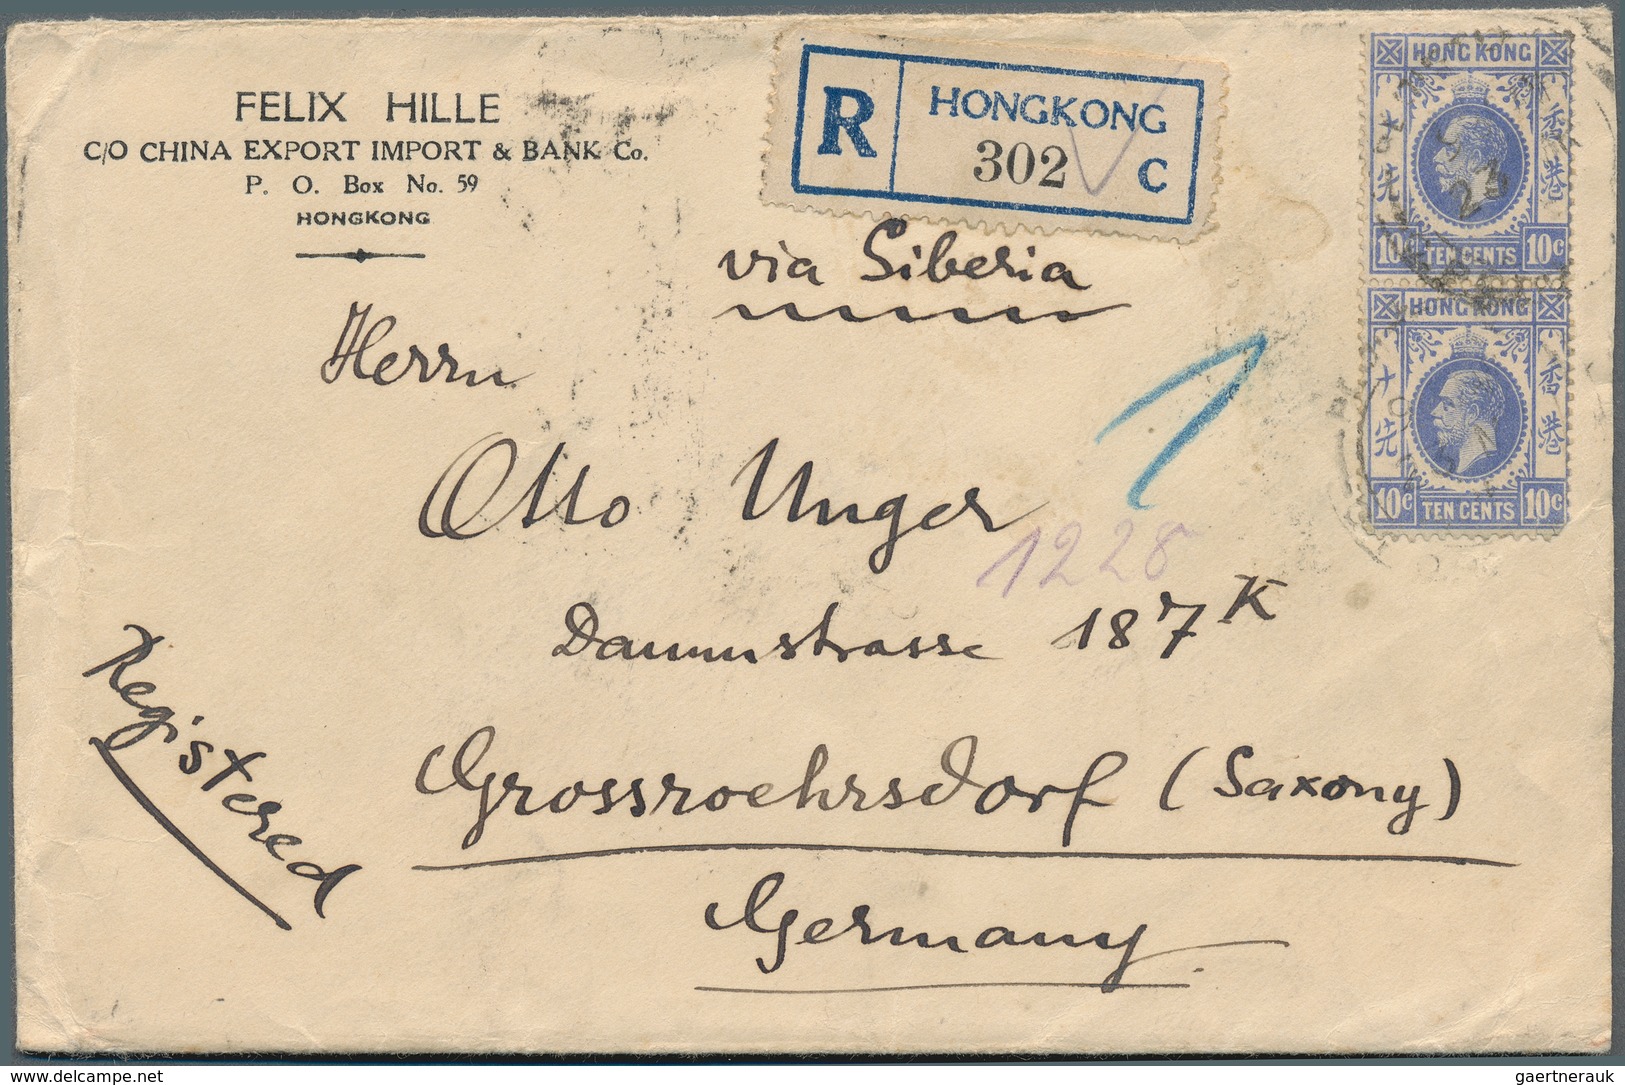 FELIX HILLE
C/O CHINA EXPORT IMPORT & BANK Co.
P. O. Box No. 59
HONGKONG
R HONGKONG
302 C
via Siberia
HONG KONG
香港
十先
23
10C TEN CENTS 10C
HONG KONG
香港
十先
10C TEN CENTS 10C
Herrn
Otto Unger
1
1228
Dammstrasse 187K
Grossroehrsdorf (Saxony)
Germany
Registered
gaertnerauk